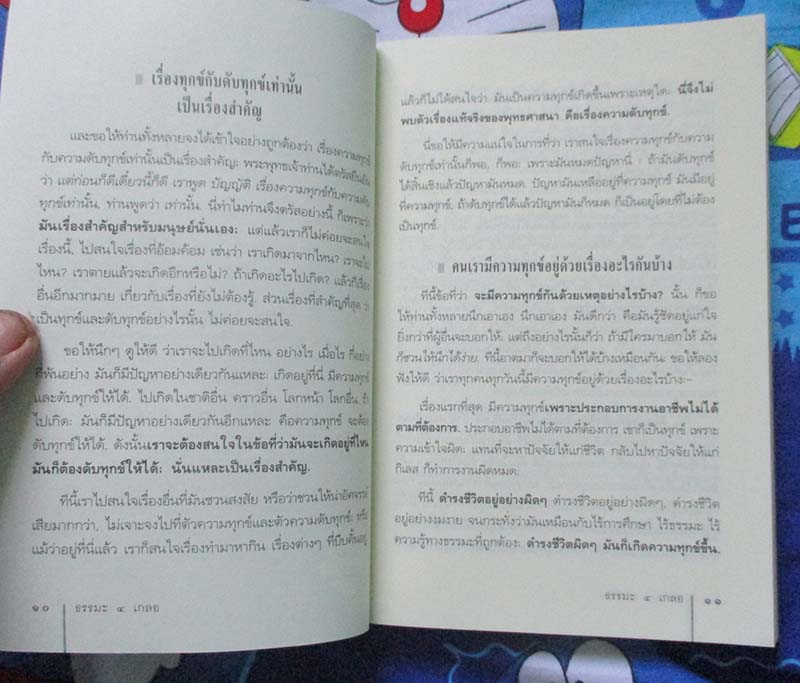 เรื่องทุกข์กับดับทุกข์เท่านั้น
เป็นเรื่องสำคัญ
และขอให้ท่านทั้งหลายจงได้เข้าใจอย่างถูกต้องว่า เรื่องความทุกข์
กับความดับทุกข์เท่านั้นเป็นเรื่องสำคัญ; พระพุทธเจ้าท่านได้ตรัสยืนยัน
ว่า แต่ก่อนก็ดีเดี๋ยวนี้ก็ดี เราพูด บัญญัติ เรื่องความทุกข์กับความดับ
ทุกข์เท่านั้น. ท่านพูดว่า เท่านั้น. นี่ทำไมท่านจึงตรัสอย่างนี้ ก็เพราะว่า
มันเรื่องสำคัญสำหรับมนุษย์นั่นเอง; แต่แล้วเราก็ไม่ค่อยจะสนใจ
เรื่องนี้, ไปสนใจเรื่องที่อ้อมค้อม เช่นว่า เราเกิดมาจากไหน? เราจะไป
ไหน? เราตายแล้วจะเกิดอีกหรือไม่? ถ้าเกิดอะไรไปเกิด? แล้วก็เรื่อง
อื่นอีกมากมาย เกี่ยวกับเรื่องที่ยังไม่ต้องรู้. ส่วนเรื่องที่สำคัญที่สุด ว่า
เป็นทุกข์และดับทุกข์อย่างไรนั้น ไม่ค่อยจะสนใจ.
ขอให้นึกๆ ดูให้ดี ว่าเราจะไปเกิดที่ไหน อย่างไร เมื่อไร กี่อย่าง
กี่พันอย่าง มันก็มีปัญหาอย่างเดียวกันแหละ; เกิดอยู่ที่นี่ มีความทุกข์
และดับทุกข์ให้ได้. ไปเกิดในชาติอื่น คราวอื่น โลกหน้า โลกอื่น. ถ้า
ไปเกิด; มันก็มีปัญหาอย่างเดียวกันอีกแหละ คือความทุกข์ จะต้อง
ดับทุกข์ให้ได้. ดังนั้นเราจะต้องสนใจในข้อที่ว่ามันจะเกิดอยู่ที่ไหน
มันก็ต้องดับทุกข์ให้ได้; นั่นแหละเป็นเรื่องสำคัญ.
ทีนี้เราไปสนใจเรื่องอื่นที่มันชวนสงสัย หรือว่าชวนให้น่าอัศจรรย์
เสียมากกว่า, ไม่เจาะจงไปที่ตัวความทุกข์และตัวความดับทุกข์; หรือ
แม้ว่าอยู่ที่นี่แล้ว เราก็สนใจเรื่องทำมาหากิน เรื่องต่างๆ ที่บีบคั้นอยู่
๑๐ ธรรมะ ๔ เกลอ
แล้วก็ไม่ได้สนใจว่า มันเป็นความทุกข์เกิดขึ้นเพราะเหตุใด; นี่จึงไม่
พบตัวเรื่องแท้จริงของพุทธศาสนา คือเรื่องความดับทุกข์.
นี่ขอให้มีความแน่ใจในการที่ว่า เราสนใจเรื่องความทุกข์กับความ
ดับทุกข์เท่านั้นก็พอ, ก็พอ; เพราะมันหมดปัญหานี่ : ถ้ามันดับทุกข์
ได้สิ้นเชิงแล้วปัญหามันหมด. ปัญหามันเหลืออยู่ที่ความทุกข์ มันมีอยู่
ที่ความทุกข์. ถ้าดับทุกข์ได้ปัญหามันก็หมด ก็เป็นอยู่โดยที่ไม่ต้อง
เป็นทุกข์.
คนเรามีความทุกข์อยู่ด้วยเรื่องอะไรกันบ้าง
ทีนี้ข้อที่ว่า จะมีความทุกข์กันด้วยเหตุอย่างไรบ้าง? นั้น ก็ขอ
ให้ท่านทั้งหลายนึกเอาเอง นึกเอาเอง มันดีกว่า คือมันรู้ชัดอยู่แก่ใจ
ยิ่งกว่าที่ผู้อื่นจะบอกให้. แต่ถึงอย่างไรนั้นก็ว่า ถ้ามีใครมาบอกให้ มัน
ก็ชวนให้นึกได้ง่าย. ทีนี้อาตมาก็จะบอกให้ได้บ้างเหมือนกัน; ขอให้ลอง
ฟังให้ดี ว่าเราทุกคนทุกวันนี้มีความทุกข์อยู่ด้วยเรื่องอะไรบ้าง:–
เรื่องแรกที่สุด มีความทุกข์เพราะประกอบการงานอาชีพไม่ได้
ตามที่ต้องการ. ประกอบอาชีพไม่ได้ตามที่ต้องการ เขาก็เป็นทุกข์ เพราะ
ความเข้าใจผิด; แทนที่จะหาปัจจัยให้แก่ชีวิต กลับไปหาปัจจัยให้แก่
กิเลส ก็ทำการงานผิดหมด;
ทีนี้ ดำรงชีวิตอยู่อย่างผิดๆ ดำรงชีวิตอยู่อย่างผิดๆ, ดำรงชีวิต
อยู่อย่างงมงาย จนกระทั่งว่ามันเหมือนกับไร้การศึกษา ไร้ธรรมะ ไร้
ความรู้ทางธรรมะที่ถูกต้อง; ดำรงชีวิตผิดๆ มันก็เกิดความทุกข์ขึ้น.
ธรรมะ ๔ เกลอ ๑๑